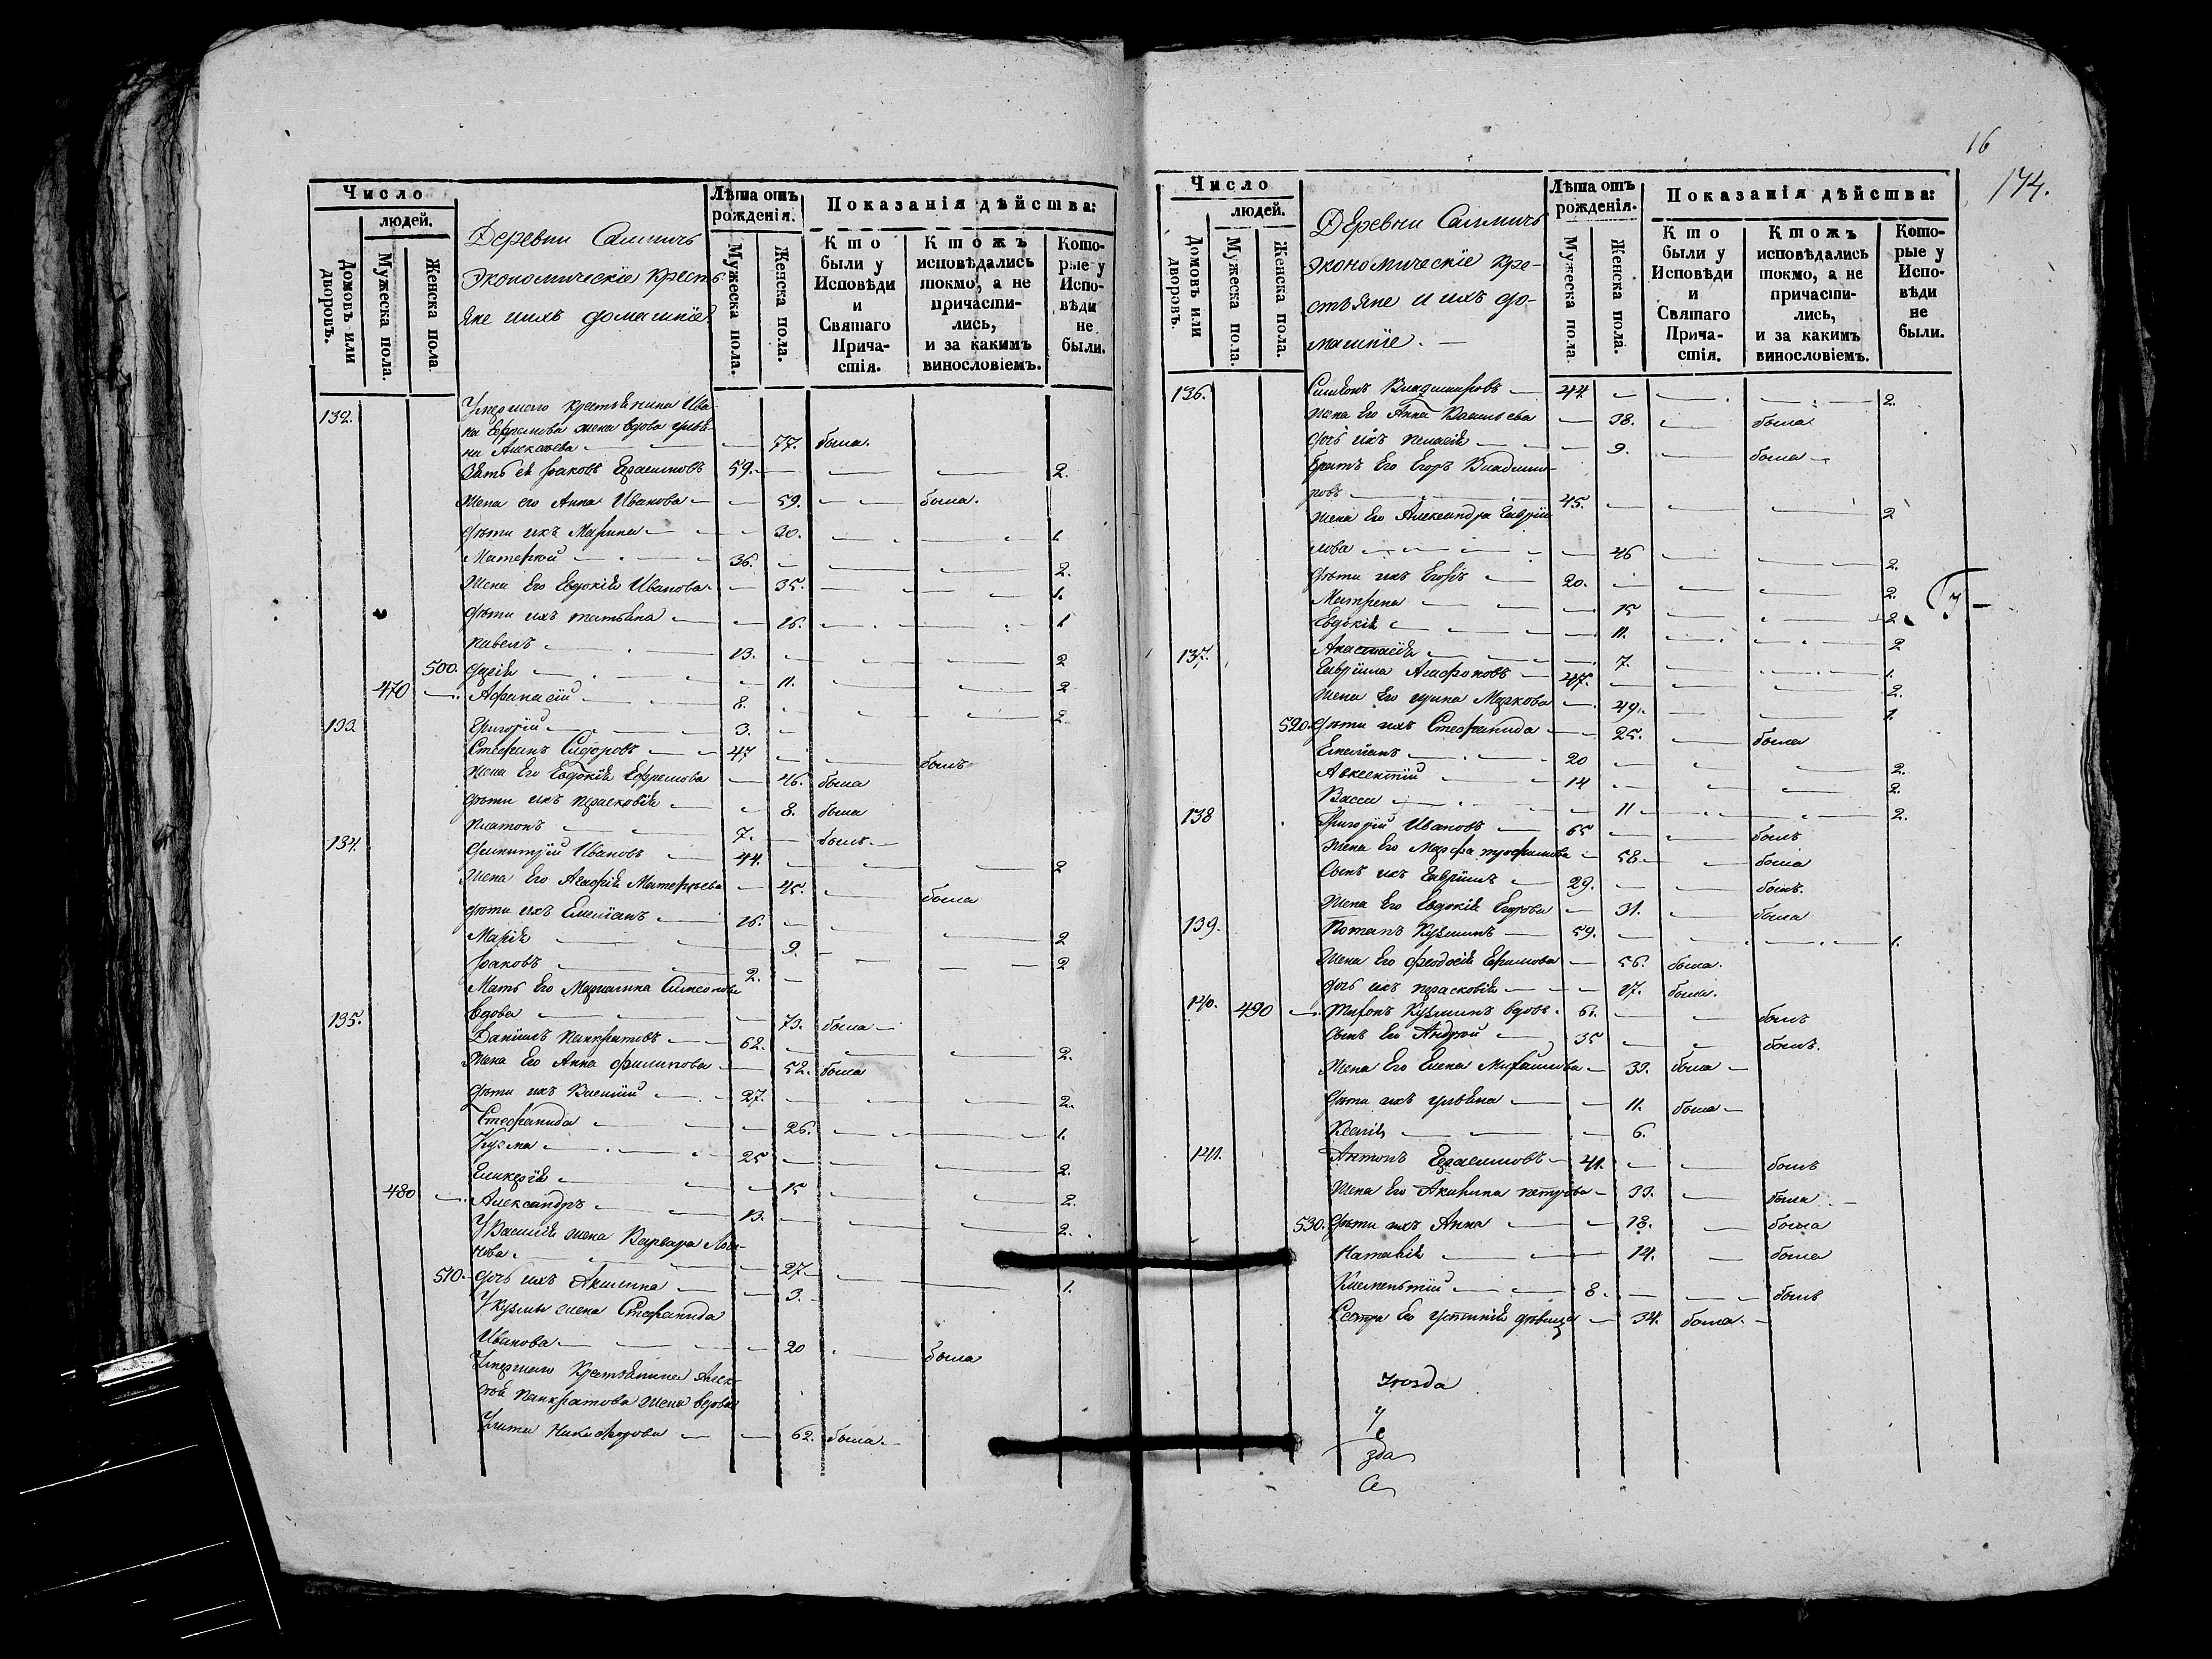 Число
людей.
Домовъ или дворовъ.
Мужеска пола.
Женска пола.
Деревни
экономическіе кресть
яне ихъ домашніе
Лѣта отъ рожденія.
Мужеска пола.
Женска пола.
Показанія дѣйства:
Кто были у Исповѣди и Святаго Прича-стія.
Ктожъ исповѣдались токмо, а не причасти-лись, и за какимъ винословіемъ.
Кото-рые у Испо-вѣди не были.
132. Умершаго крестьянина Ива
на Ефремова жена вдова
на Алексѣева 77. была.
Іаковъ Герасимовъ 59. 2.
Жена его Анна Иванова 59. была.
дѣти ихъ Марина 30. 1.
36. 2.
Жена Его Евдокія Иванова 35. 1.
дѣти ихъ татьяна 16. 1
Павелъ 13. 2
500. 11. 2
470 Афанасій 8. 2.
Григорій 3.
133. Стефанъ Сидоровъ 47 былъ
Жена Его Евдокія Ефремова 46. была
дѣти ихъ Прасковія 8. была
Платонъ 7. былъ
134. Димитрій Ивановъ 44. 2
Жена Его Агафія 45. была
дѣти ихъ Емеліанъ 16. 2
Марія 9. 2
Іаковъ 2.
Мать Его
вдова 73. была
135. Даніилъ Панкратовъ 62. 2.
Жена Его Анна Филипова 52. была
дѣти ихъ Василій 27. 2.
Стефанида 26. 1.
Кузма 25 2.
Гликерія 15 2.
480 Александръ 13. 2.
У Василія жена Варвара
нова 27 1.
510. дочь ихъ Акилина 3.
У Кузмы жена Стефанида
Иванова 20 была
Умершаго Крестьянина Алек
Панкратова жена вдова
Улита Никифорова 62. была.
16
174.
Число
людей.
Домовъ или дворовъ.
Мужеска пола.
Женска пола.
Деревни
экономическіе кре-
стьяне и ихъ до-
машніе.
Лѣта отъ рожденія.
Мужеска пола.
Женска пола.
Показанія дѣйства:
Кто были у Исповѣди и Святаго Прича-стія.
Ктожъ исповѣдались токмо, а не причасти-лись, и за какимъ винословіемъ.
Кото-рые у Испо-вѣди не были.
136. Владимировъ 44. 2.
Жена Его Анна Васильева 38. была
дочь ихъ Пелагія 9. была
братъ Его Егоръ Владими-
ровъ 45. 2
Жена Его Александра Гаврии
лова 46 2.
дѣти ихъ Егоръ 20. 2.
Матрена 15 2.
Евдокія 11. 2
Анастасія 7. 1.
137. Гавріила Агафоновъ 47. 2.
Жена Его Маркова 49. 1.
520. дѣти ихъ Стефанида 25. была
Емеліанъ 20 2.
Авксентій 14 2.
Васса 11 2.
138 Григорій Ивановъ 65 былъ
Жена Его Марфа 58. была
Сынъ ихъ Гавріилъ 29. былъ.
Жена Его Евдокія Егорова 31. была
139. Потапъ Кузминъ 59. 1.
Жена Его Феодосія 56. была.
дочь ихъ Прасковія 17. была.
140. 490 Кузминъ вдовъ 61. былъ
Сынъ Его Андрей 35 былъ.
Жена Его Елена Михайлова 33. была
дѣти ихъ Ульяна 11. была
Ксенія 6.
141. Антонъ Герасимовъ 41. былъ
Жена Его Акилина Петрова 33. была
530. дѣти ихъ Анна 18. была
Наталія 14. была
Климентій 8. былъ
Сестра Его Устинія дѣвица 34. была.